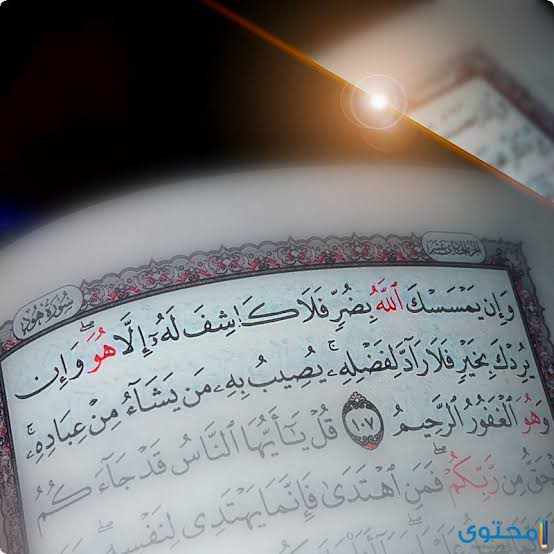 سورة هود
الجزء الحادي عشر
وَإِن يَمْسَسْكَ ٱللَّهُ بِضُرٍّ فَلَا كَاشِفَ لَهُۥٓ إِلَّا هُوَ ۖ وَإِن
يُرِدْكَ بِخَيْرٍ فَلَا رَآدَّ لِفَضْلِهِۦ ۚ يُصِيبُ بِهِۦ مَن يَشَآءُ مِنْ عِبَادِهِۦ ۚ
وَهُوَ ٱلْغَفُورُ ٱلرَّحِيمُ ١٠٧ قُلْ يَٰٓأَيُّهَا ٱلنَّاسُ قَدْ جَآءَكُمُ
ٱلْحَقُّ مِن رَّبِّكُمْ ۖ فَمَنِ ٱهْتَدَىٰ فَإِنَّمَا يَهْتَدِى لِنَفْسِهِۦ ۖ
محتوى